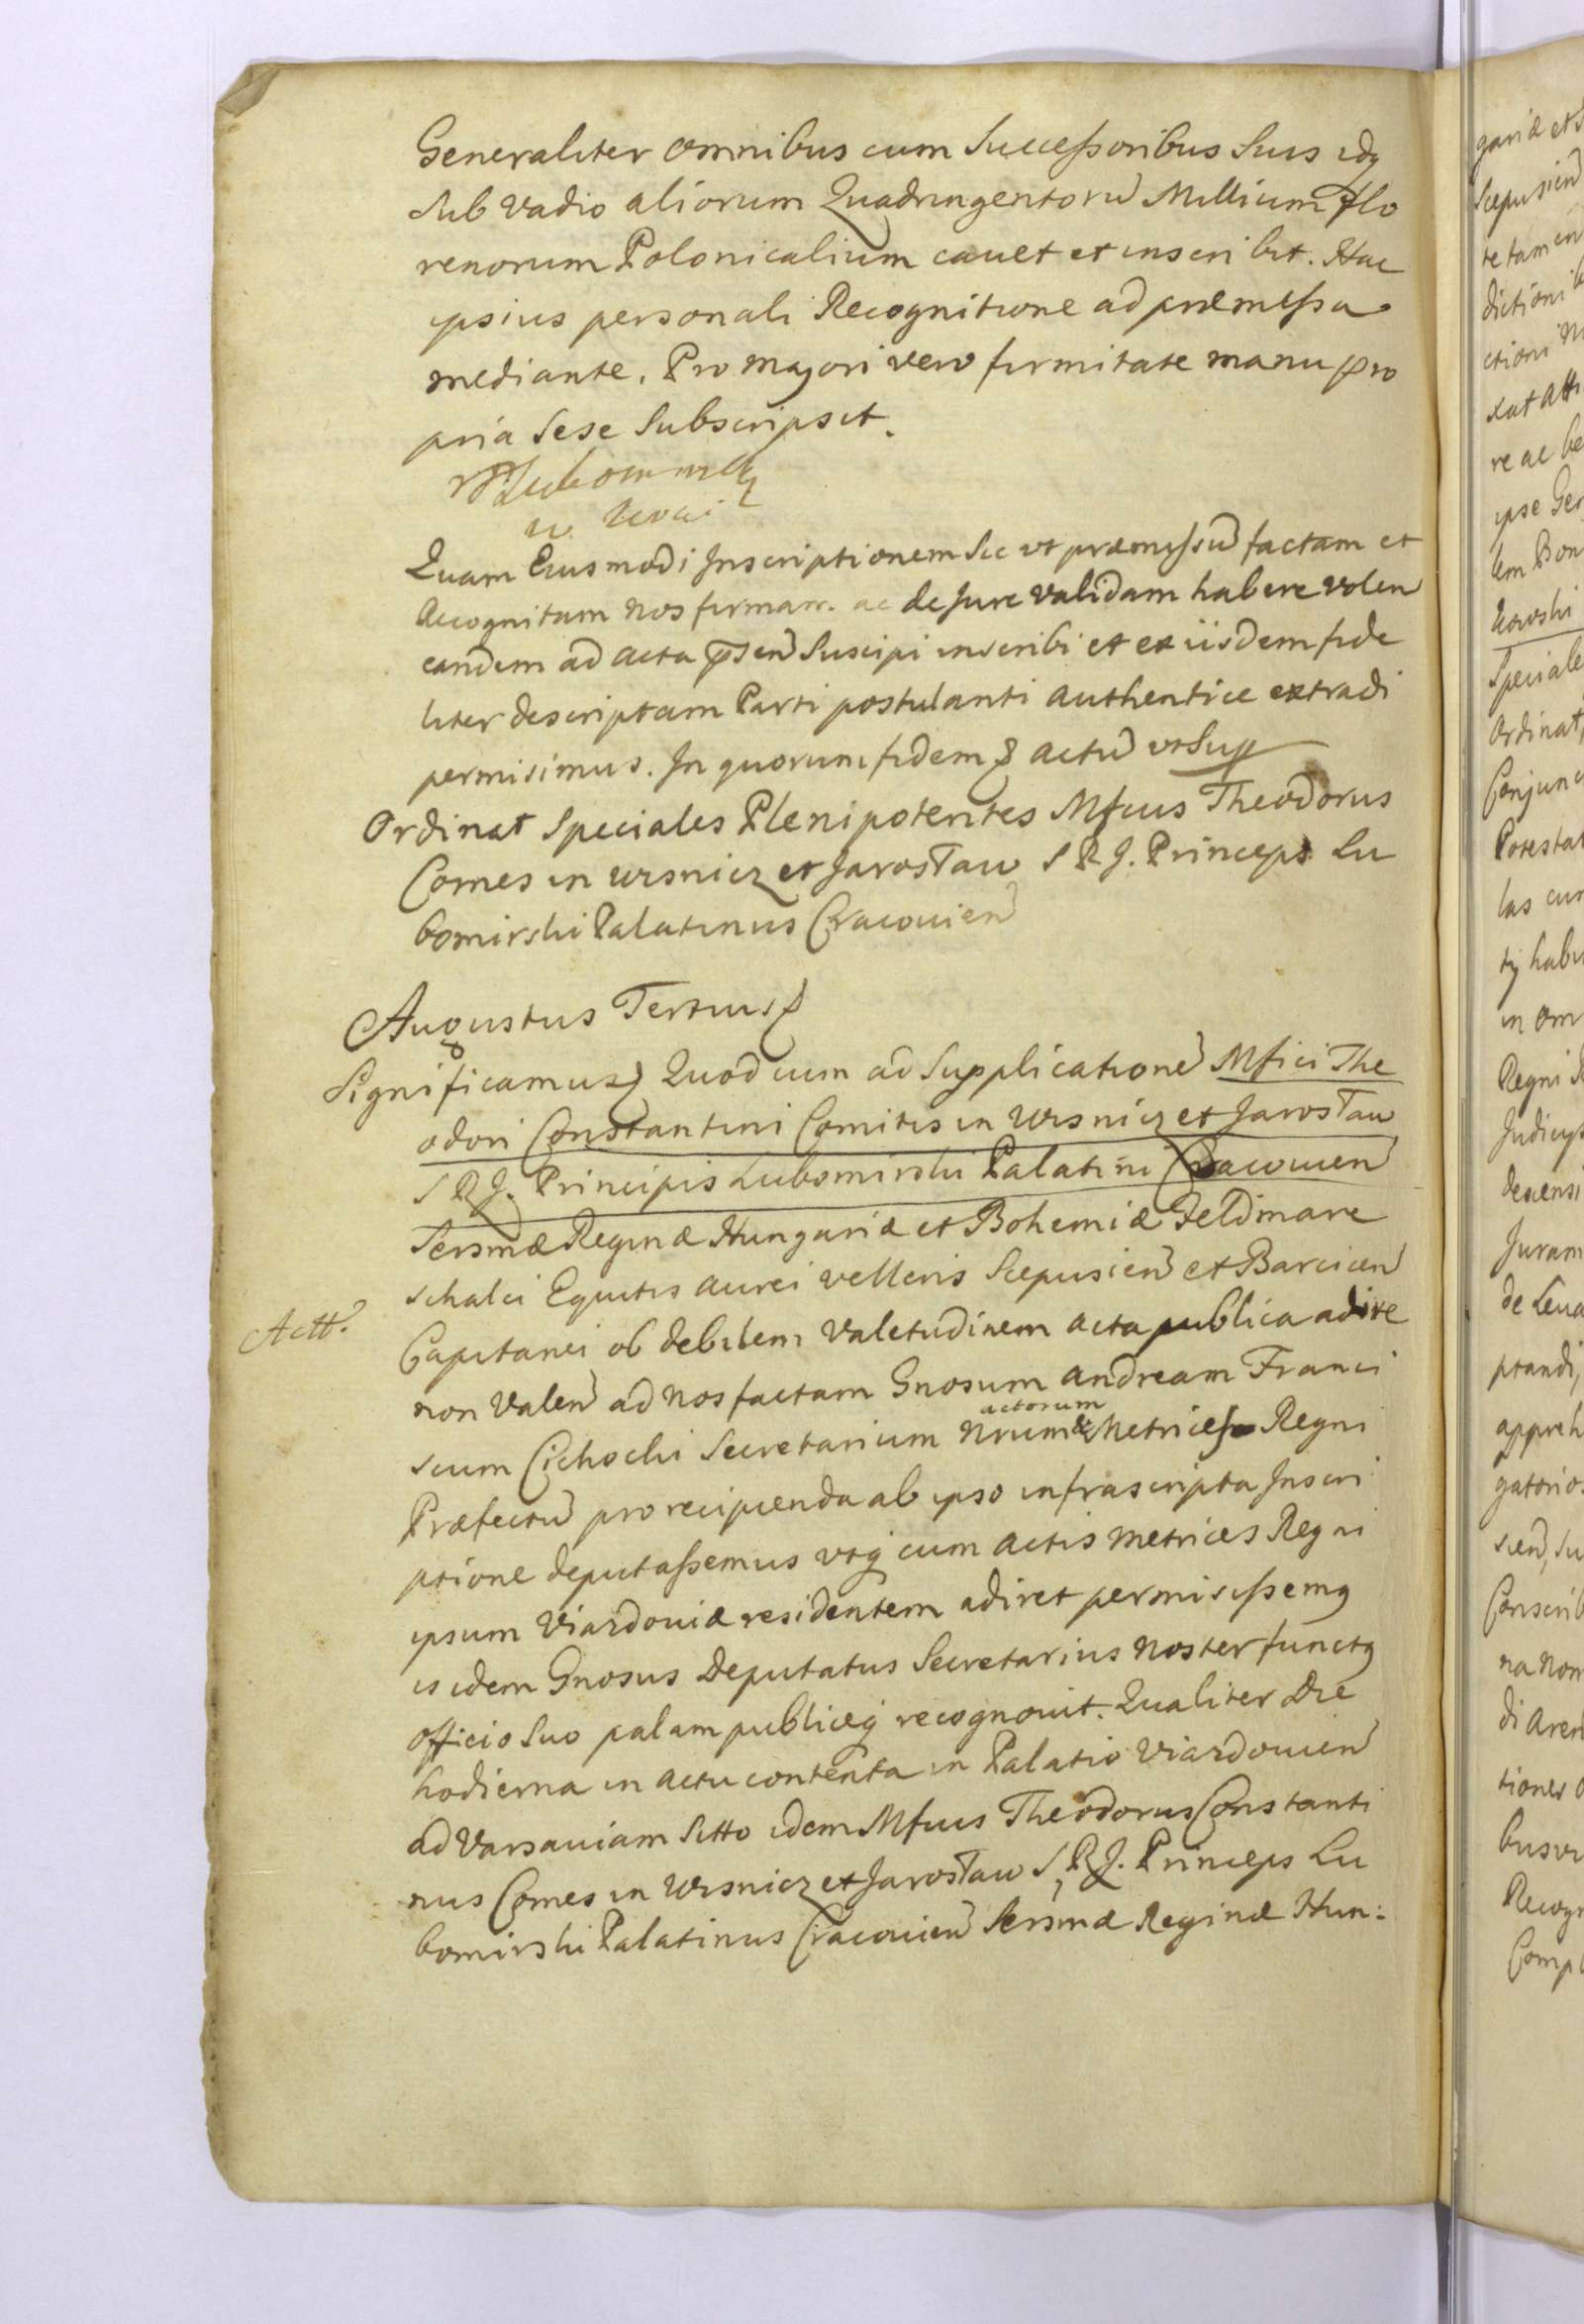 Generaliter omnibus cum Successoribus suis idq
sub vadio aliorum Quadringentorū Millium flo
renorum Polonicalium cauet et inscribit. Hac
ipsius personali Recognitione ad præmissa
mediante. Pro majori vero firmitate manu pro
pria sese subscripsit.
Quam Eiusmodi Inscriptionem sic vt præmissū factam et
recognitam nos firmam ac de Jure validam habere volen
eandem ad acta psen suscipi inscribi et ex iisdem fide
liter descriptam Parti postulanti authentice extradi
permisimus. In quorum fidem & actū vt supp
Ordinat speciales Plenipotentes Mfcus Theodorus
Comes in Wisnicz et Jarosław S R J. Princeps Lu
bomirski Palatinus Cracouien
Augustus Tertius &
Significamus & Quod cum ad supplicationē Mfici The
odori Constantini Comitis in Wisnicz et Jarosław
S R J. Principis Lubomirski Palatini Cracouien
Sersmæ Reginæ Hungariæ et Bohemiæ Feldmare
schalci Equitis aurei velleris Scepusien et Barcicen
Actt.
Capitanei ob debilem valetudinem acta publica adire
non valen ad nos factam Gnosum Andream Franci
scum Cichocki Secretarium Nrum & actorum Metrices Regni
Præfectū pro recipienda ab ipso infrascripta Inscri
ptione deputassemus vtq cum actis Metrices Regni
ipsum Viazdouiæ residentem adiret permisissemq
is idem Gnosus Deputatus Secretarius noster functq
officio suo palam publiceq recognouit. Qualiter Die
hodierna in actu contenta in Palatio Viazdouien
ad Varsauiam sitto idem Mfcus Theodorus Constanti
nus Comes in Wisnicz et Jarosław S, R J. Princeps Lu
bomirski Palatinus Cracouien Sersmæ Reginæ Hun: